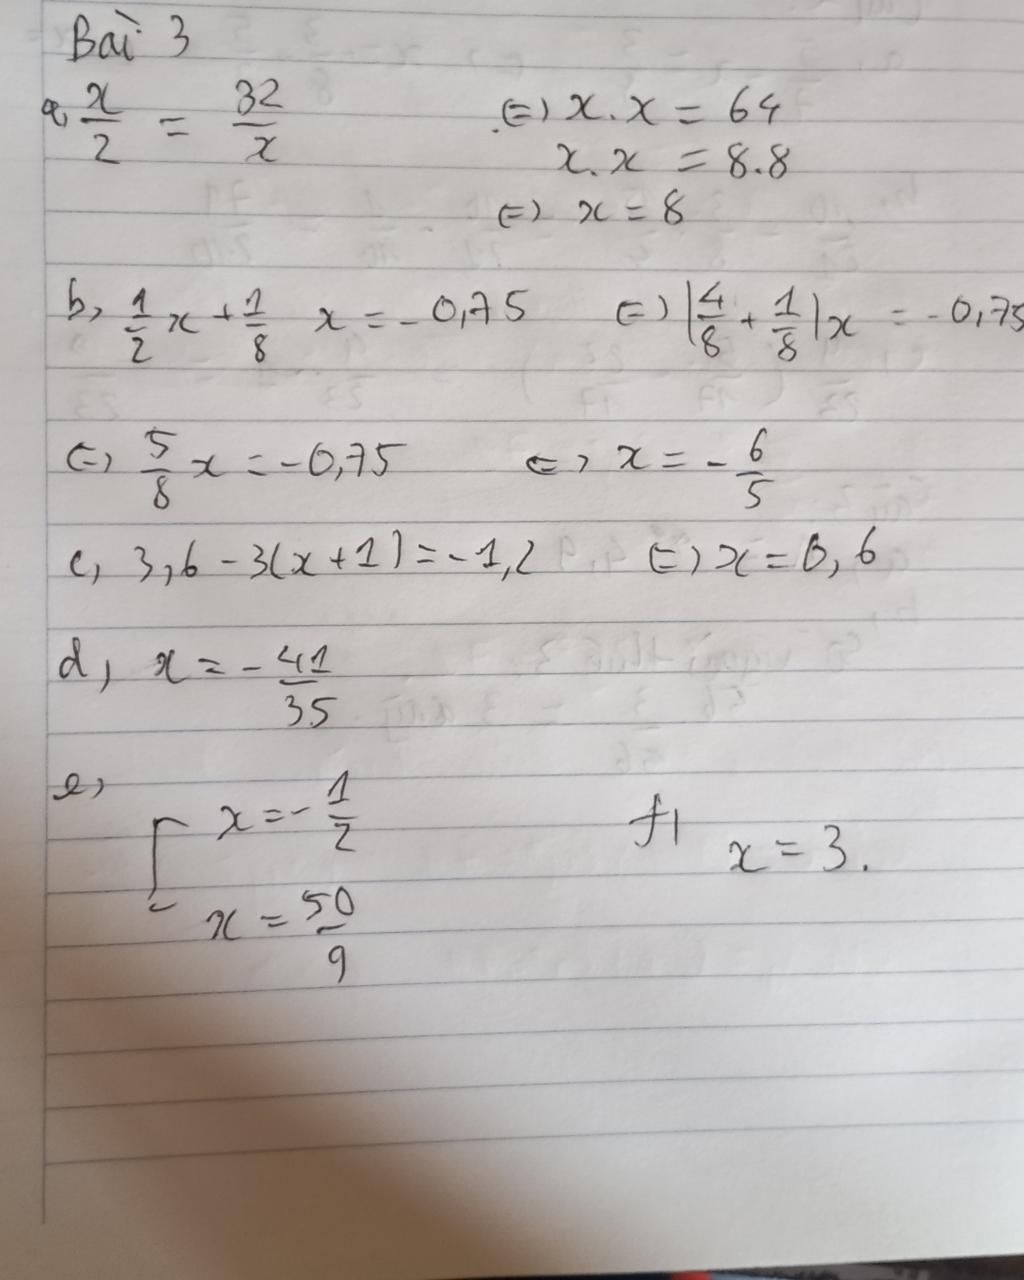 Bài 3
a, x/2 = 32/x (=) x.x = 64
x.x = 8.8
(=) x = 8
b, 1/2 x + 1/8 x = -0,75 (=) (4/8 + 1/8)x = -0,75
(=) 5/8 x = -0,75 (=) x = -6/5
c, 3,6 - 3(x+1) = -1,2 (=) x = 0,6
d, x = -41/35
e, [ x = -1/2 f, x = 3.
x = 50/9